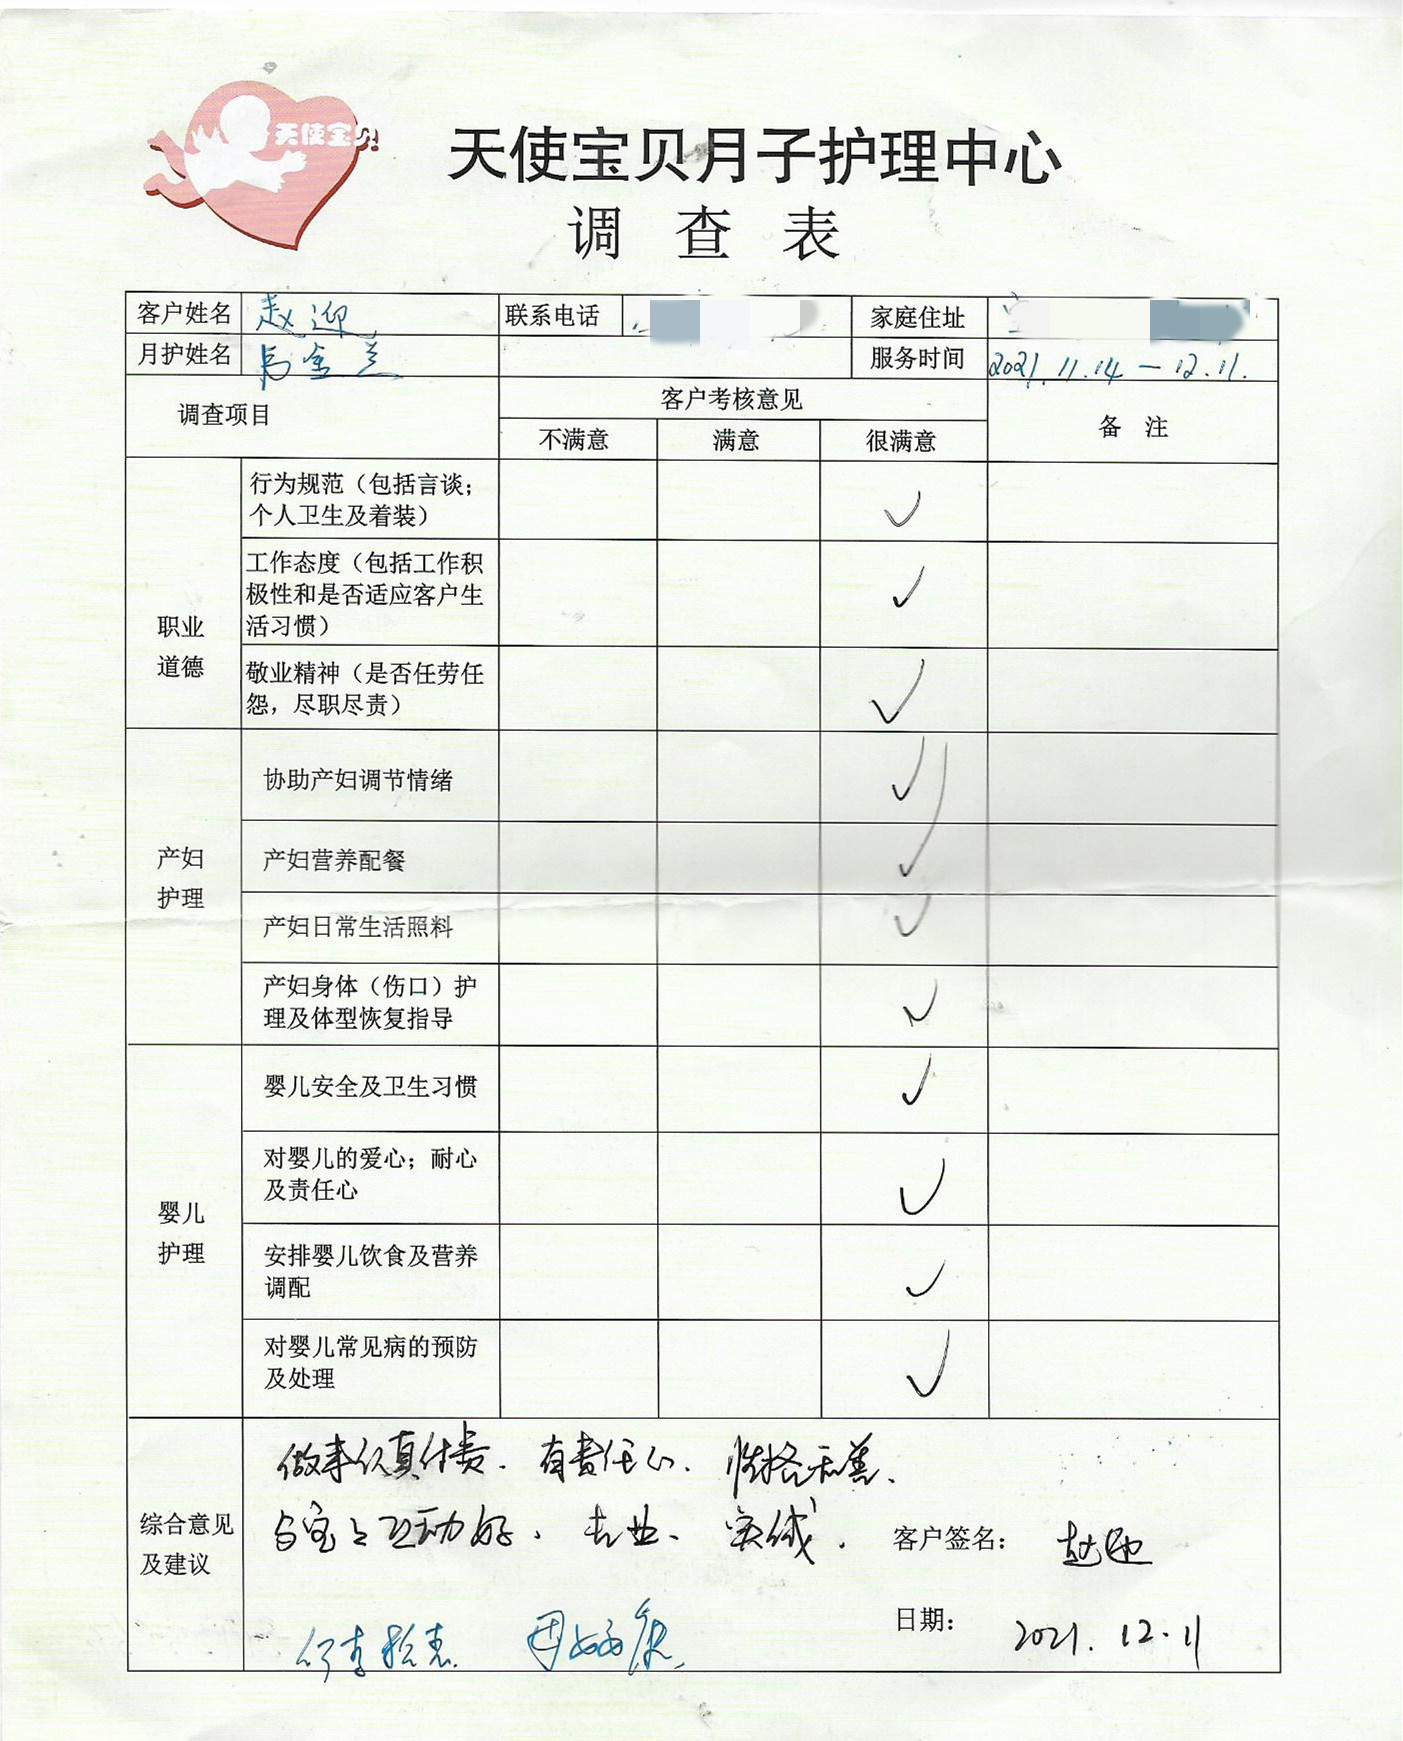 天使宝贝
天使宝贝月子护理中心
调 查 表
客户姓名 赵迎 联系电话 家庭住址
月护姓名 马金兰 服务时间 2021.11.14 — 12.11.
调查项目 客户考核意见 备 注
不满意 满意 很满意
职业
道德
行为规范（包括言谈；
个人卫生及着装） ✓
工作态度（包括工作积
极性和是否适应客户生
活习惯） ✓
敬业精神（是否任劳任
怨，尽职尽责） ✓
产妇
护理
协助产妇调节情绪 ✓
产妇营养配餐 ✓
产妇日常生活照料 ✓
产妇身体（伤口）护
理及体型恢复指导 ✓
婴儿
护理
婴儿安全及卫生习惯 ✓
对婴儿的爱心；耐心
及责任心 ✓
安排婴儿饮食及营养
调配 ✓
对婴儿常见病的预防
及处理 ✓
综合意见
及建议
做事认真付责. 有责任心. 性格和善.
与宝宝互动好. 专业. 实诚.
客户签名： 赵迎
日期： 2021.12.11